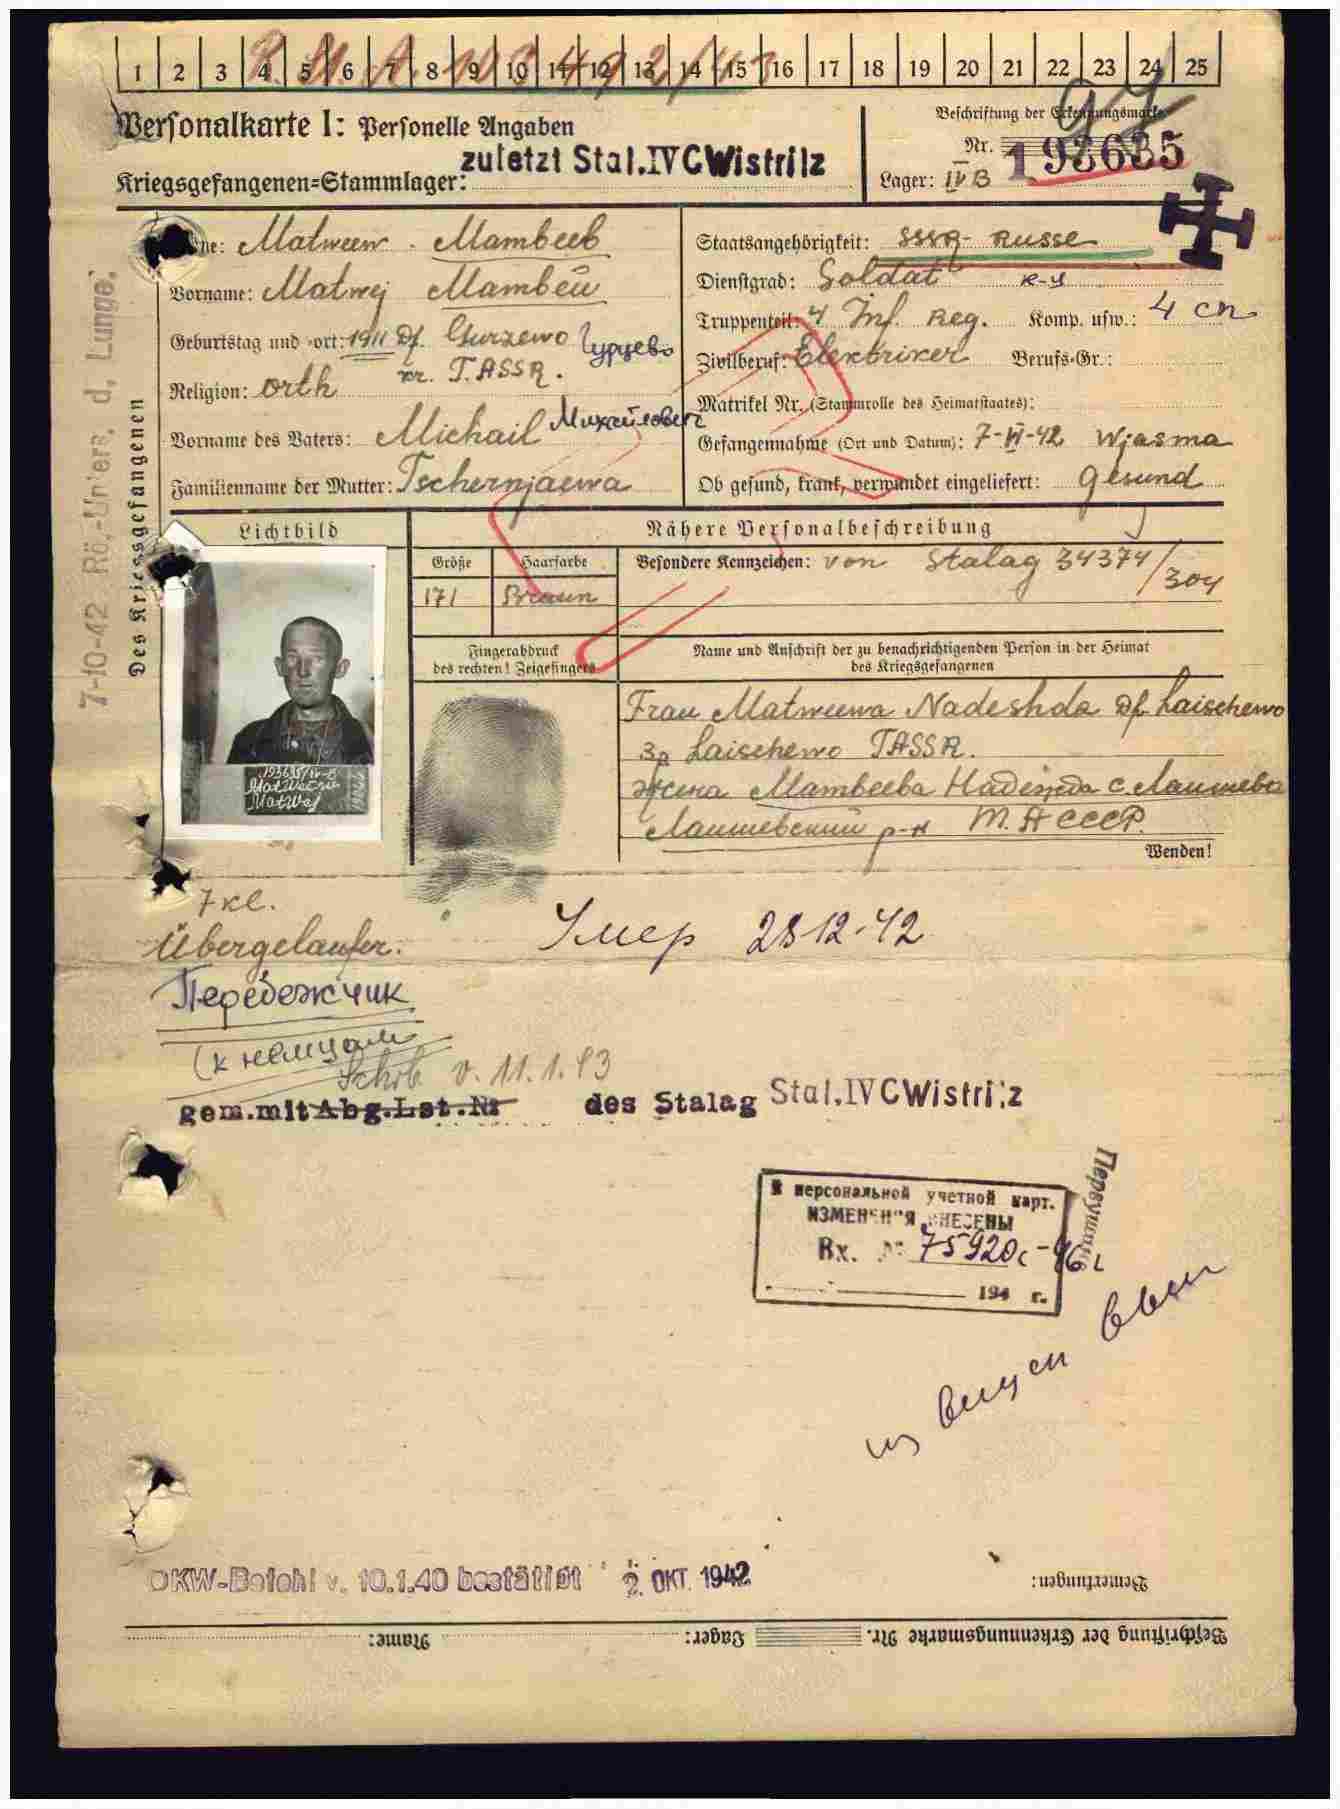 1 2 3 4 5 6 7 8 9 10 11 12 13 14 15 16 17 18 19 20 21 22 23 24 25
Personalkarte I: Personelle Angaben
Beschriftung der Erkennungsmarke
Nr. 193635
Kriegsgefangenen=Stammlager: zuletzt Stal.IVC Wistritz
Lager: IV B
Matweew - Матвеев
Staatsangehörigkeit: SSSR- Russe
Vorname: Matwej Матвей
Dienstgrad: Soldat
Truppenteil: 4 Inf. Reg. Komp. usw.: 4 сп
Geburtstag und -ort: 1911 Df. Gurzewo Гурцево
kr. TASSR.
Zivilberuf: Elektriker Berufs=Gr.:
Religion: orth
Matrikel Nr. (Stammrolle des Heimatstaates):
Vorname des Vaters: Michail Михайлович
Gefangennahme (Ort und Datum): 7-VI-42 Wjasma
Familienname der Mutter: Tschernjaewa
Ob gesund, krank, verwundet eingeliefert: gesund
Des Kriegsgefangenen
7-10-42 Rö.-Unters. d. Lunge:
Lichtbild
Nähere Personalbeschreibung
Größe Haarfarbe
171 Braun
Besondere Kennzeichen: von Stalag 34374/304
Fingerabdruck
des rechten! Zeigefingers
Name und Anschrift der zu benachrichtigenden Person in der Heimat
des Kriegsgefangenen
Frau Matweewa Nadeshda Df. Laischewo
Laischewo TASSR.
жена Матвеева Надежда с. Лаишево
Лаишевский р-н Т.АСССР.
Wenden!
193635/IV-B
Matweew
Matwej
7 kl.
Übergelaufer.
Умер 28 12-42
Перебежчик
(к немцам
Schrb v. 11.1.43
gem.mit Abg.Lst.Nr des Stalag Stal.IVC Wistritz
К персональной учетной карт.
ИЗМЕНЕНИЯ ВНЕСЕНЫ
Вх. № 75920с-46г
194 г.
OKW-Befehl v. 10.1.40 bestätigt 2. OKT. 1942
Bemerkungen:
Beschriftung der Erkennungsmarke Nr. Lager: Name: